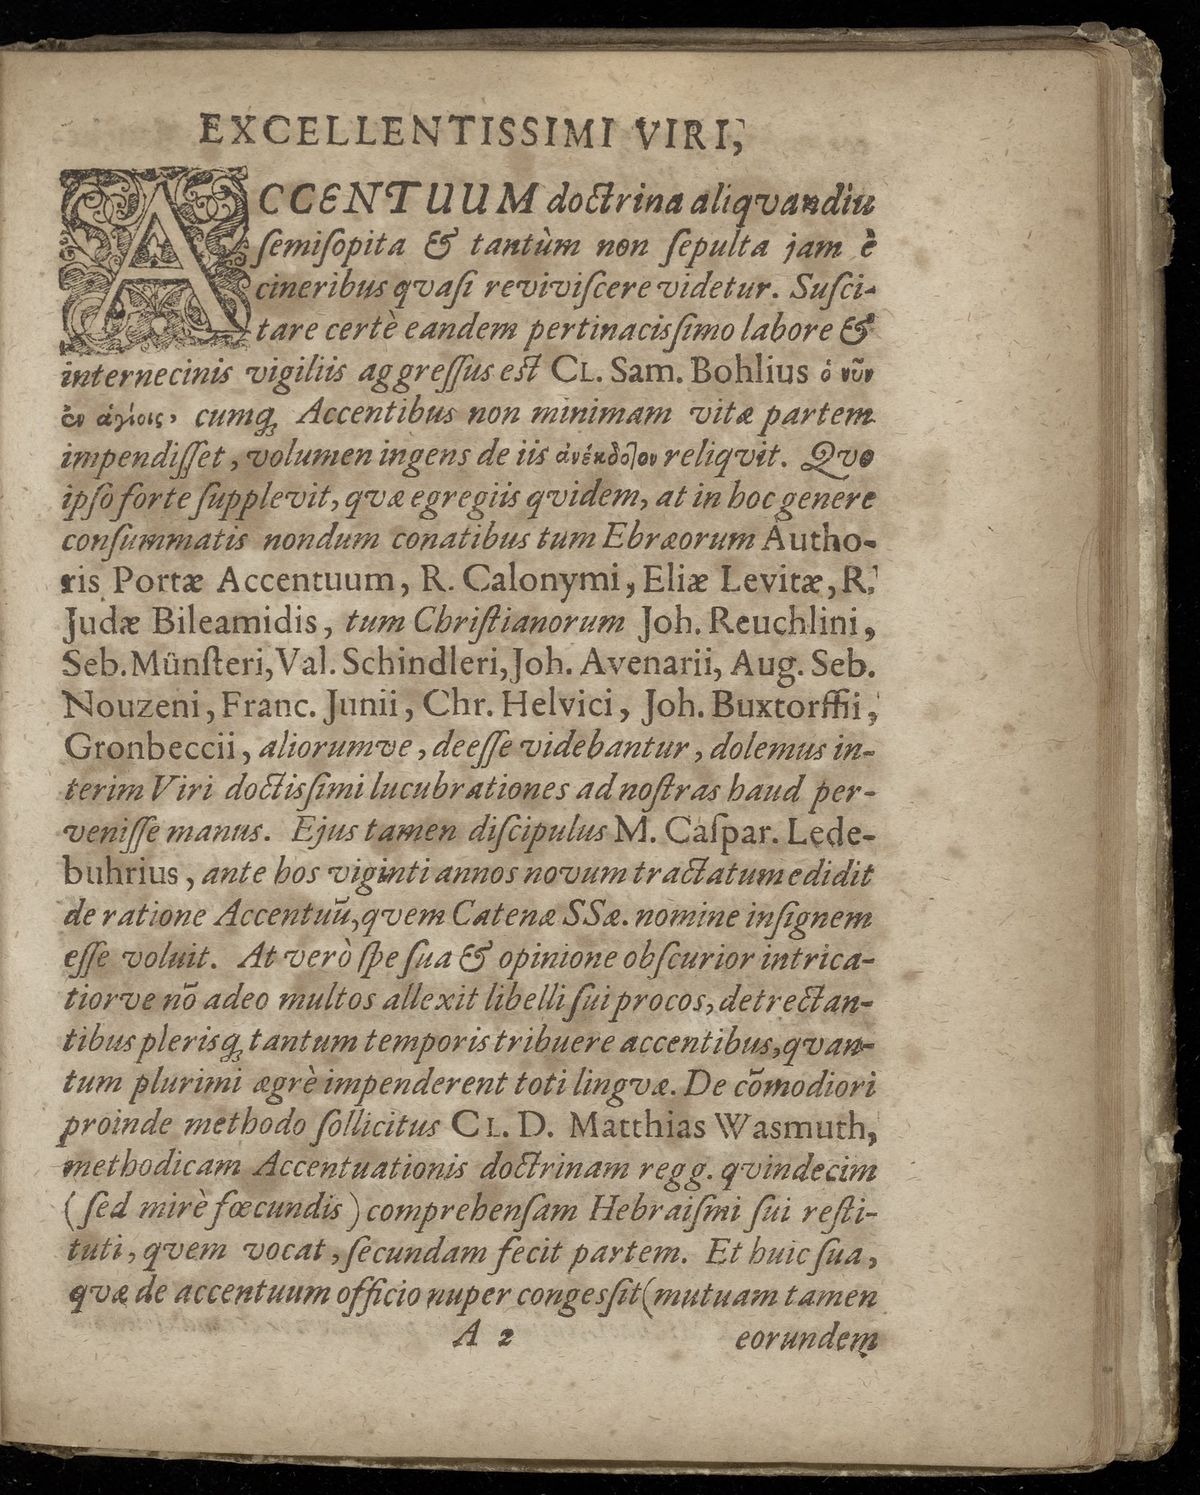 EXCELLENTISSIMI VIRI,
ACCENTUUM doctrina aliqvandiu
ſemiſopita & tantùm non ſepulta jam è
cineribus qvaſi reviviſcere videtur. Suſci-
tare certè eandem pertinacisſimo labore &
internecinis vigiliis aggreſſus est CL. Sam. Bohlius ὁ νῦν
ἐν ἁγίοις, cumq; Accentibus non minimam vitæ partem
impendiſſet, volumen ingens de iis ἀνέκδοτον reliqvit. Qvo
ipſo forte ſupplevit, qvæ egregiis qvidem, at in hoc genere
conſummatis nondum conatibus tum Ebræorum Autho-
ris Portæ Accentuum, R. Calonymi, Eliæ Levitæ, R.
Judæ Bileamidis, tum Chriſtianorum Joh. Reuchlini,
Seb. Münſteri, Val. Schindleri, Joh. Avenarii, Aug. Seb.
Nouzeni, Franc. Junii, Chr. Helvici, Joh. Buxtorffii,
Gronbeccii, aliorumve, deeſſe videbantur, dolemus in-
terim Viri doctisſimi lucubrationes ad noſtras haud per-
veniſſe manus. Ejus tamen diſcipulus M. Caſpar. Lede-
buhrius, ante hos viginti annos novum tractatum edidit
de ratione Accentuũ, qvem Catenæ SSæ. nomine inſignem
eſſe voluit. At verò ſpe ſua & opinione obſcurior intrica-
tiorve nõ adeo multos allexit libelli ſui procos, detrectan-
tibus plerisq; tantum temporis tribuere accentibus, qvan-
tum plurimi ægrè impenderent toti lingvæ. De cõmodiori
proinde methodo ſollicitus CL. D. Matthias Wasmuth,
methodicam Accentuationis doctrinam regg. qvindecim
(ſed mirè fœcundis) comprehenſam Hebraiſmi ſui reſti-
tuti, qvem vocat, ſecundam fecit partem. Et huic ſua,
qvæ de accentuum officio nuper congesſit (mutuam tamen
A 2 eorundem